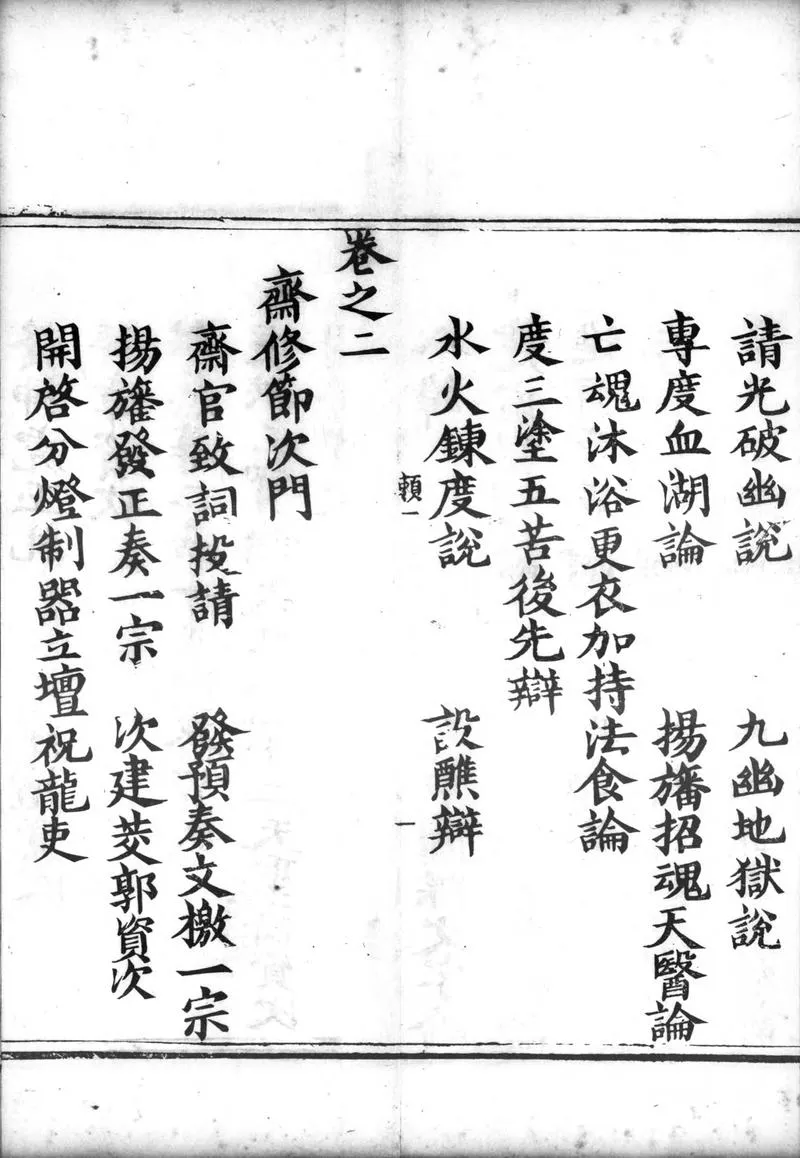 請光破幽說　九幽地獄說
專度血湖論　揚旛招魂天醫論
亡魂沐浴更衣加持法食論
度三塗五苦後先辯
水火鍊度說　設醮辯
賴一
一
卷之二
齋修節次門
齋官致詞投請　發預奏文檄一宗
揚旛發正奏一宗　次建茭郭資次
開啓分燈制器立壇祝龍吏